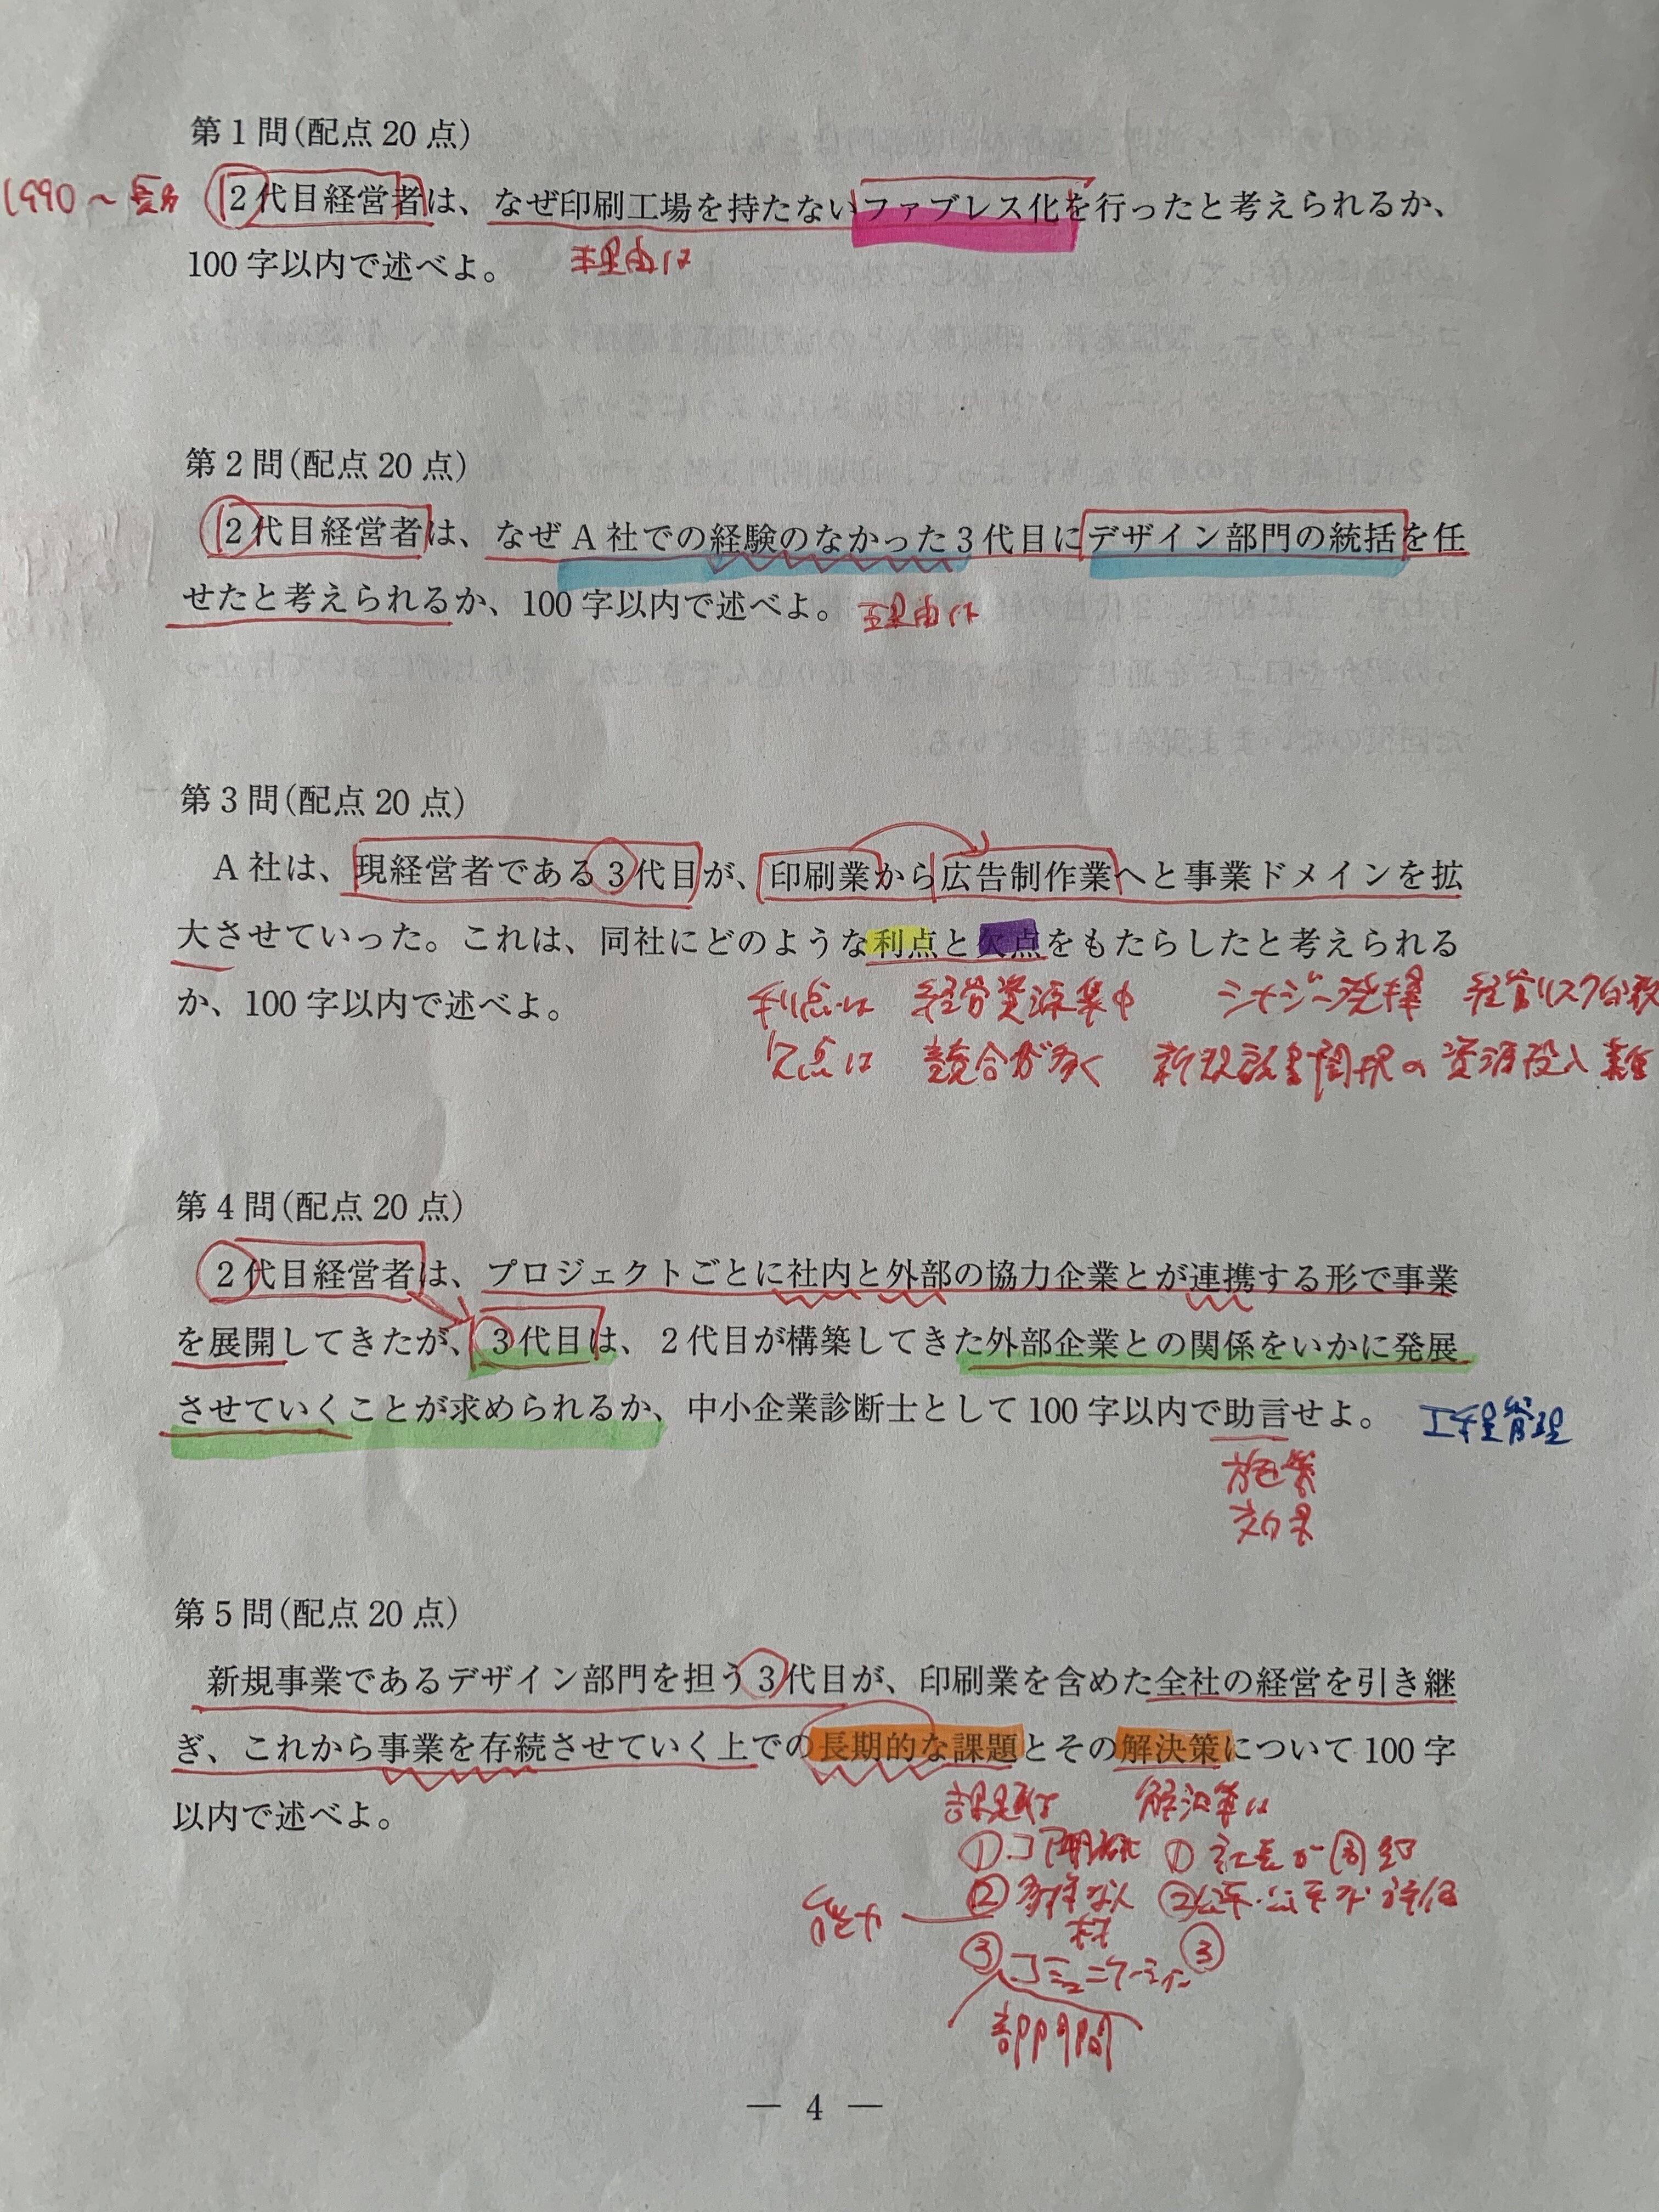 第1問(配点20点)
1990～
2代目経営者は、なぜ印刷工場を持たないファブレス化を行ったと考えられるか、
100字以内で述べよ。 理由は
第2問(配点20点)
2代目経営者は、なぜA社での経験のなかった3代目にデザイン部門の統括を任
せたと考えられるか、100字以内で述べよ。 理由は
第3問(配点20点)
A社は、現経営者である3代目が、印刷業から広告制作業へと事業ドメインを拡
大させていった。これは、同社にどのような利点と欠点をもたらしたと考えられる
か、100字以内で述べよ。
利点は 経営資源集中 シナジー発揮 経営リスク分散
欠点は 競合が多く 新規説書開拓の資源投入難
第4問(配点20点)
2代目経営者は、プロジェクトごとに社内と外部の協力企業とが連携する形で事業
を展開してきたが、3代目は、2代目が構築してきた外部企業との関係をいかに発展
させていくことが求められるか、中小企業診断士として100字以内で助言せよ。 工程管理
施策
効果
第5問(配点20点)
新規事業であるデザイン部門を担う3代目が、印刷業を含めた全社の経営を引き継
ぎ、これから事業を存続させていく上での長期的な課題とその解決策について100字
以内で述べよ。
課題は 解決策は
① ① 社長が周知
能力 ②多様な人材 ②公正・公平な評価
③コミュニケーション ③
部門間
— 4 —